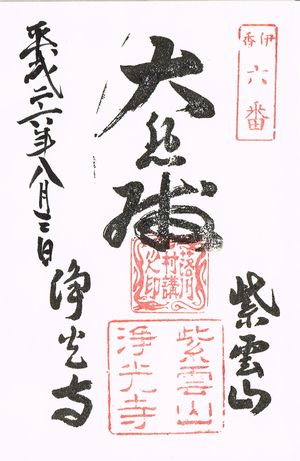 伊香
六番
紫雲山
大悲殿
落川
村講
之印
紫雲山
淨光寺
平成二十六年八月三日
浄光寺